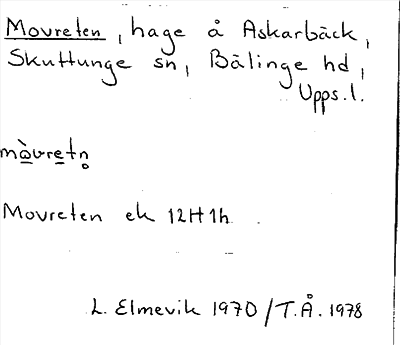 Movreten, hage å Askarbäck,
Skuttunge sn, Bälinge hd,
Upps.l.
mòvretn̥
Movreten ek 12H1h
L. Elmevik 1970/T.Å. 1978